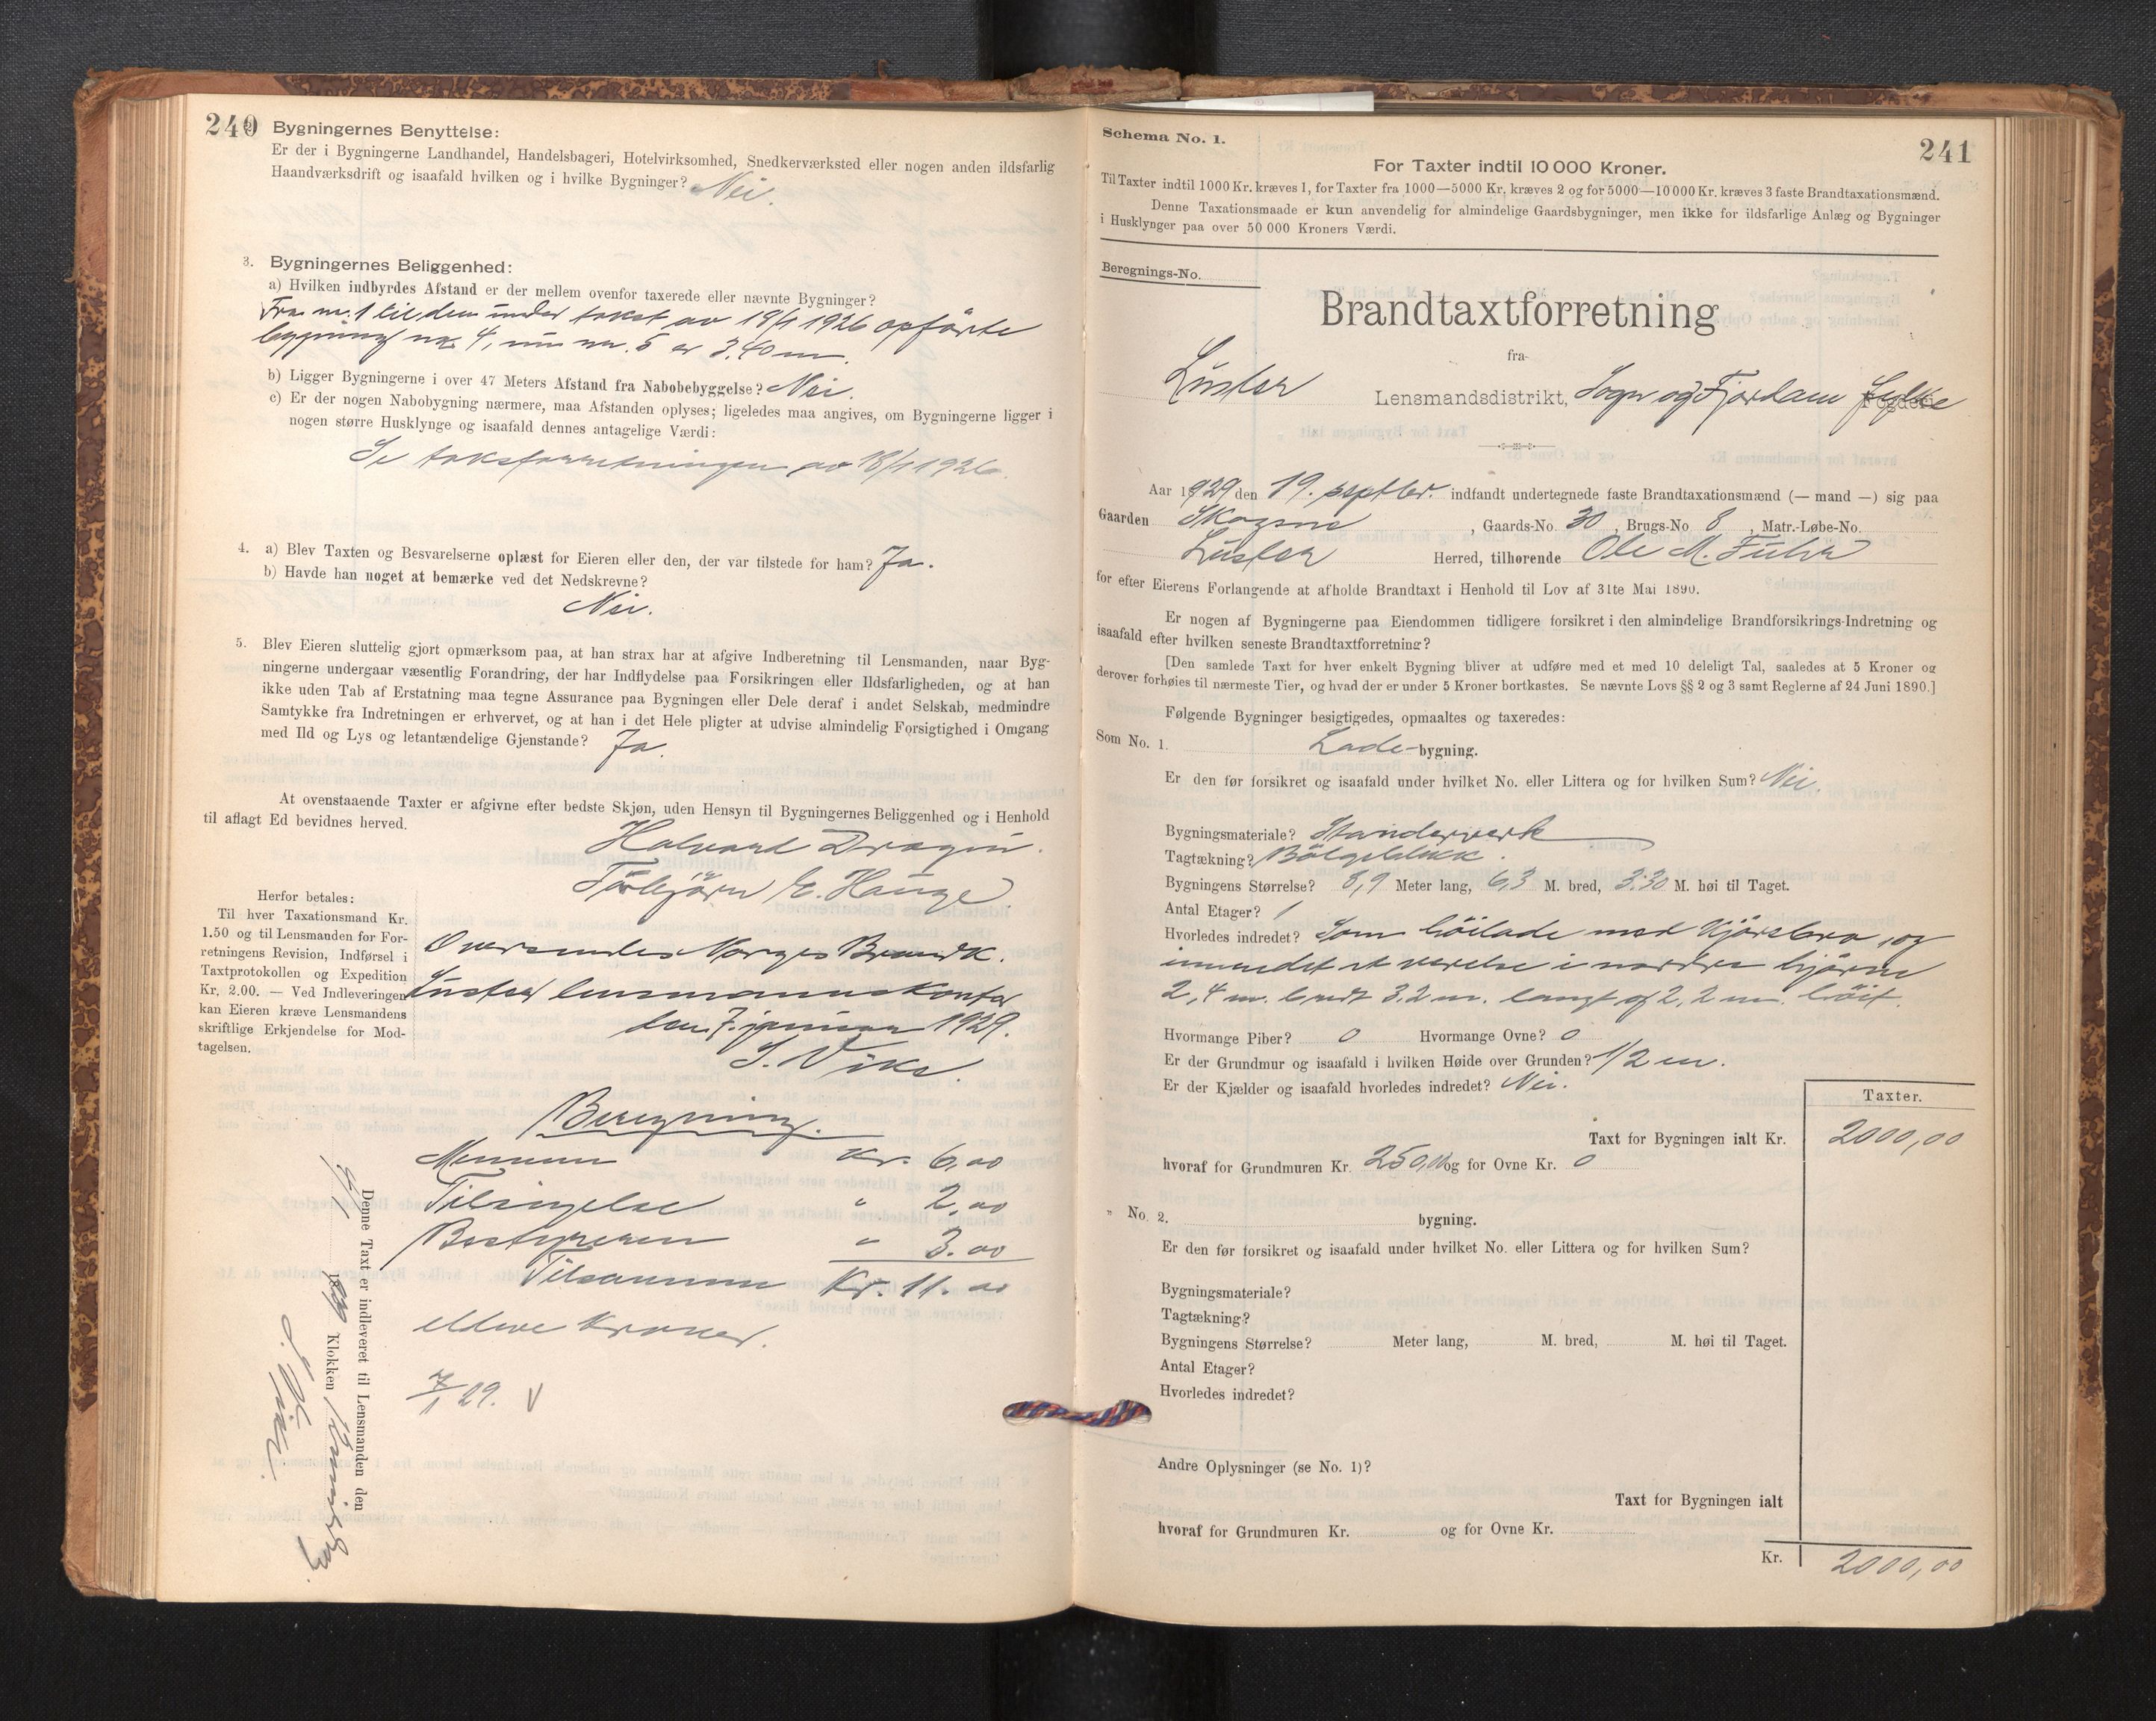 240
Bygningernes Benyttelse:
Er der i Bygningerne Landhandel, Handelsbageri, Hotelvirksomhed, Snedkerværksted eller nogen anden ildsfarlig
Haandværksdrift og isaafald hvilken og i hvilke Bygninger? Nei.
3. Bygningernes Beliggenhed:
a) Hvilken indbyrdes Afstand er der mellem ovenfor taxerede eller nævnte Bygninger?
Fra nr. 1 til den under takst av 18/1 1926 opförte
bygning nr. 4, nu nr. 5 er 3.40 m.
b) Ligger Bygningerne i over 47 Meters Afstand fra Nabobebyggelse? Nei.
c) Er der nogen Nabobygning nærmere, maa Afstanden oplyses; ligeledes maa angives, om Bygningerne ligger i
nogen større Husklynge og isaafald dennes antagelige Værdi:
Se takstforretningen av 18/1 1926
4. a) Blev Taxten og Besvarelserne oplæst for Eieren eller den, der var tilstede for ham? Ja.
b) Havde han noget at bemærke ved det Nedskrevne?
Nei.
5. Blev Eieren sluttelig gjort opmærksom paa, at han strax har at afgive Indberetning til Lensmanden, naar Byg-
ningerne undergaar væsentlig Forandring, der har Indflydelse paa Forsikringen eller Ildsfarligheden, og at han
ikke uden Tab af Erstatning maa tegne Assurance paa Bygningen eller Dele deraf i andet Selskab, medmindre
Samtykke fra Indretningen er erhvervet, og at han i det Hele pligter at udvise almindelig Forsigtighed i Omgang
med Ild og Lys og letantændelige Gjenstande? Ja.
At ovenstaaende Taxter er afgivne efter bedste Skjøn, uden Hensyn til Bygningernes Beliggenhed og i Henhold
til aflagt Ed bevidnes herved.
Halvard Dragin.
Torbjörn E. Hauge.
Herfor betales:
Til hver Taxationsmand Kr.
1.50 og til Lensmanden for For-
retningens Revision, Indførsel i
Taxtprotokollen og Expedition
Kr. 2.00. — Ved Indleveringen
kan Eieren kræve Lensmandens
skriftlige Erkjendelse for Mod-
tagelsen.
Oversendes Norges Brandk.
Luster lensmannskontor
den 7. januar 1929.
S. Vike.
Beregning.
Mennene Kr. 6,00
Tilsigelse " 2,00
Bestyreren " 3.00
Tilsammen Kr. 11.00
elleve kroner.
7/1 29. V
Denne Taxt er indleveret til Lensmanden den
Klokken
S. Vike.
Schema No. 1.
241
For Taxter indtil 10 000 Kroner.
Til Taxter indtil 1000 Kr. kræves 1, for Taxter fra 1000—5000 Kr. kræves 2 og for 5000—10 000 Kr. kræves 3 faste Brandtaxationsmænd.
Denne Taxationsmaade er kun anvendelig for almindelige Gaardsbygninger, men ikke for ildsfarlige Anlæg og Bygninger
i Husklynger paa over 50 000 Kroners Værdi.
Beregnings-No.
Brandtaxtforretning
fra
Luster Lensmandsdistrikt, Sogn og Fjordane Fylke Fogderi
Aar 1929 den 19. septbr. indfandt undertegnede faste Brandtaxationsmænd (— mand —) sig paa
Gaarden Skagene, Gaards-No. 30, Brugs-No 8, Matr.-Løbe-No.
Luster Herred, tilhørende Ole M. Fuhr
for efter Eierens Forlangende at afholde Brandtaxt i Henhold til Lov af 31te Mai 1890.
Er nogen af Bygningerne paa Eiendommen tidligere forsikret i den almindelige Brandforsikrings-Indretning og
isaafald efter hvilken seneste Brandtaxtforretning?
[Den samlede Taxt for hver enkelt Bygning bliver at udføre med et med 10 deleligt Tal, saaledes at 5 Kroner og
derover forhøies til nærmeste Tier, og hvad der er under 5 Kroner bortkastes. Se nævnte Lovs §§ 2 og 3 samt Reglerne af 24 Juni 1890.]
Følgende Bygninger besigtigedes, opmaaltes og taxeredes:
Som No. 1. Lade-bygning.
Er den før forsikret og isaafald under hvilket No. eller Littera og for hvilken Sum? Nei.
Bygningsmateriale? Standerverk
Tagtækning? Bölgeblikk.
Bygningens Størrelse? 8,9 Meter lang, 6,3 M. bred, 3.30 M. høi til Taget.
Antal Etager? 1
Hvorledes indredet? Som höilade med kjörebro, og
innredet et verelse i nordre hjörne
2,4 m. bredt 3,2 m. langt og 2,2 m. höit.
Hvormange Piber? 0 Hvormange Ovne? 0
Er der Grundmur og isaafald i hvilken Høide over Grunden? 1/2 m.
Er der Kjælder og isaafald hvorledes indredet? Nei.
Taxter.
Taxt for Bygningen ialt Kr. 2000,00
hvoraf for Grundmuren Kr. 250,00 og for Ovne Kr. 0
" No. 2. bygning.
Er den før forsikret og isaafald under hvilket No. eller Littera og for hvilken Sum?
Bygningsmateriale?
Tagtækning?
Bygningens Størrelse? Meter lang, M. bred, M. høi til Taget.
Antal Etager?
Hvorledes indredet?
Andre Oplysninger (se No. 1)?
Taxt for Bygningen ialt
hvoraf for Grundmuren Kr. og for Ovne Kr.
Kr. 2000,00